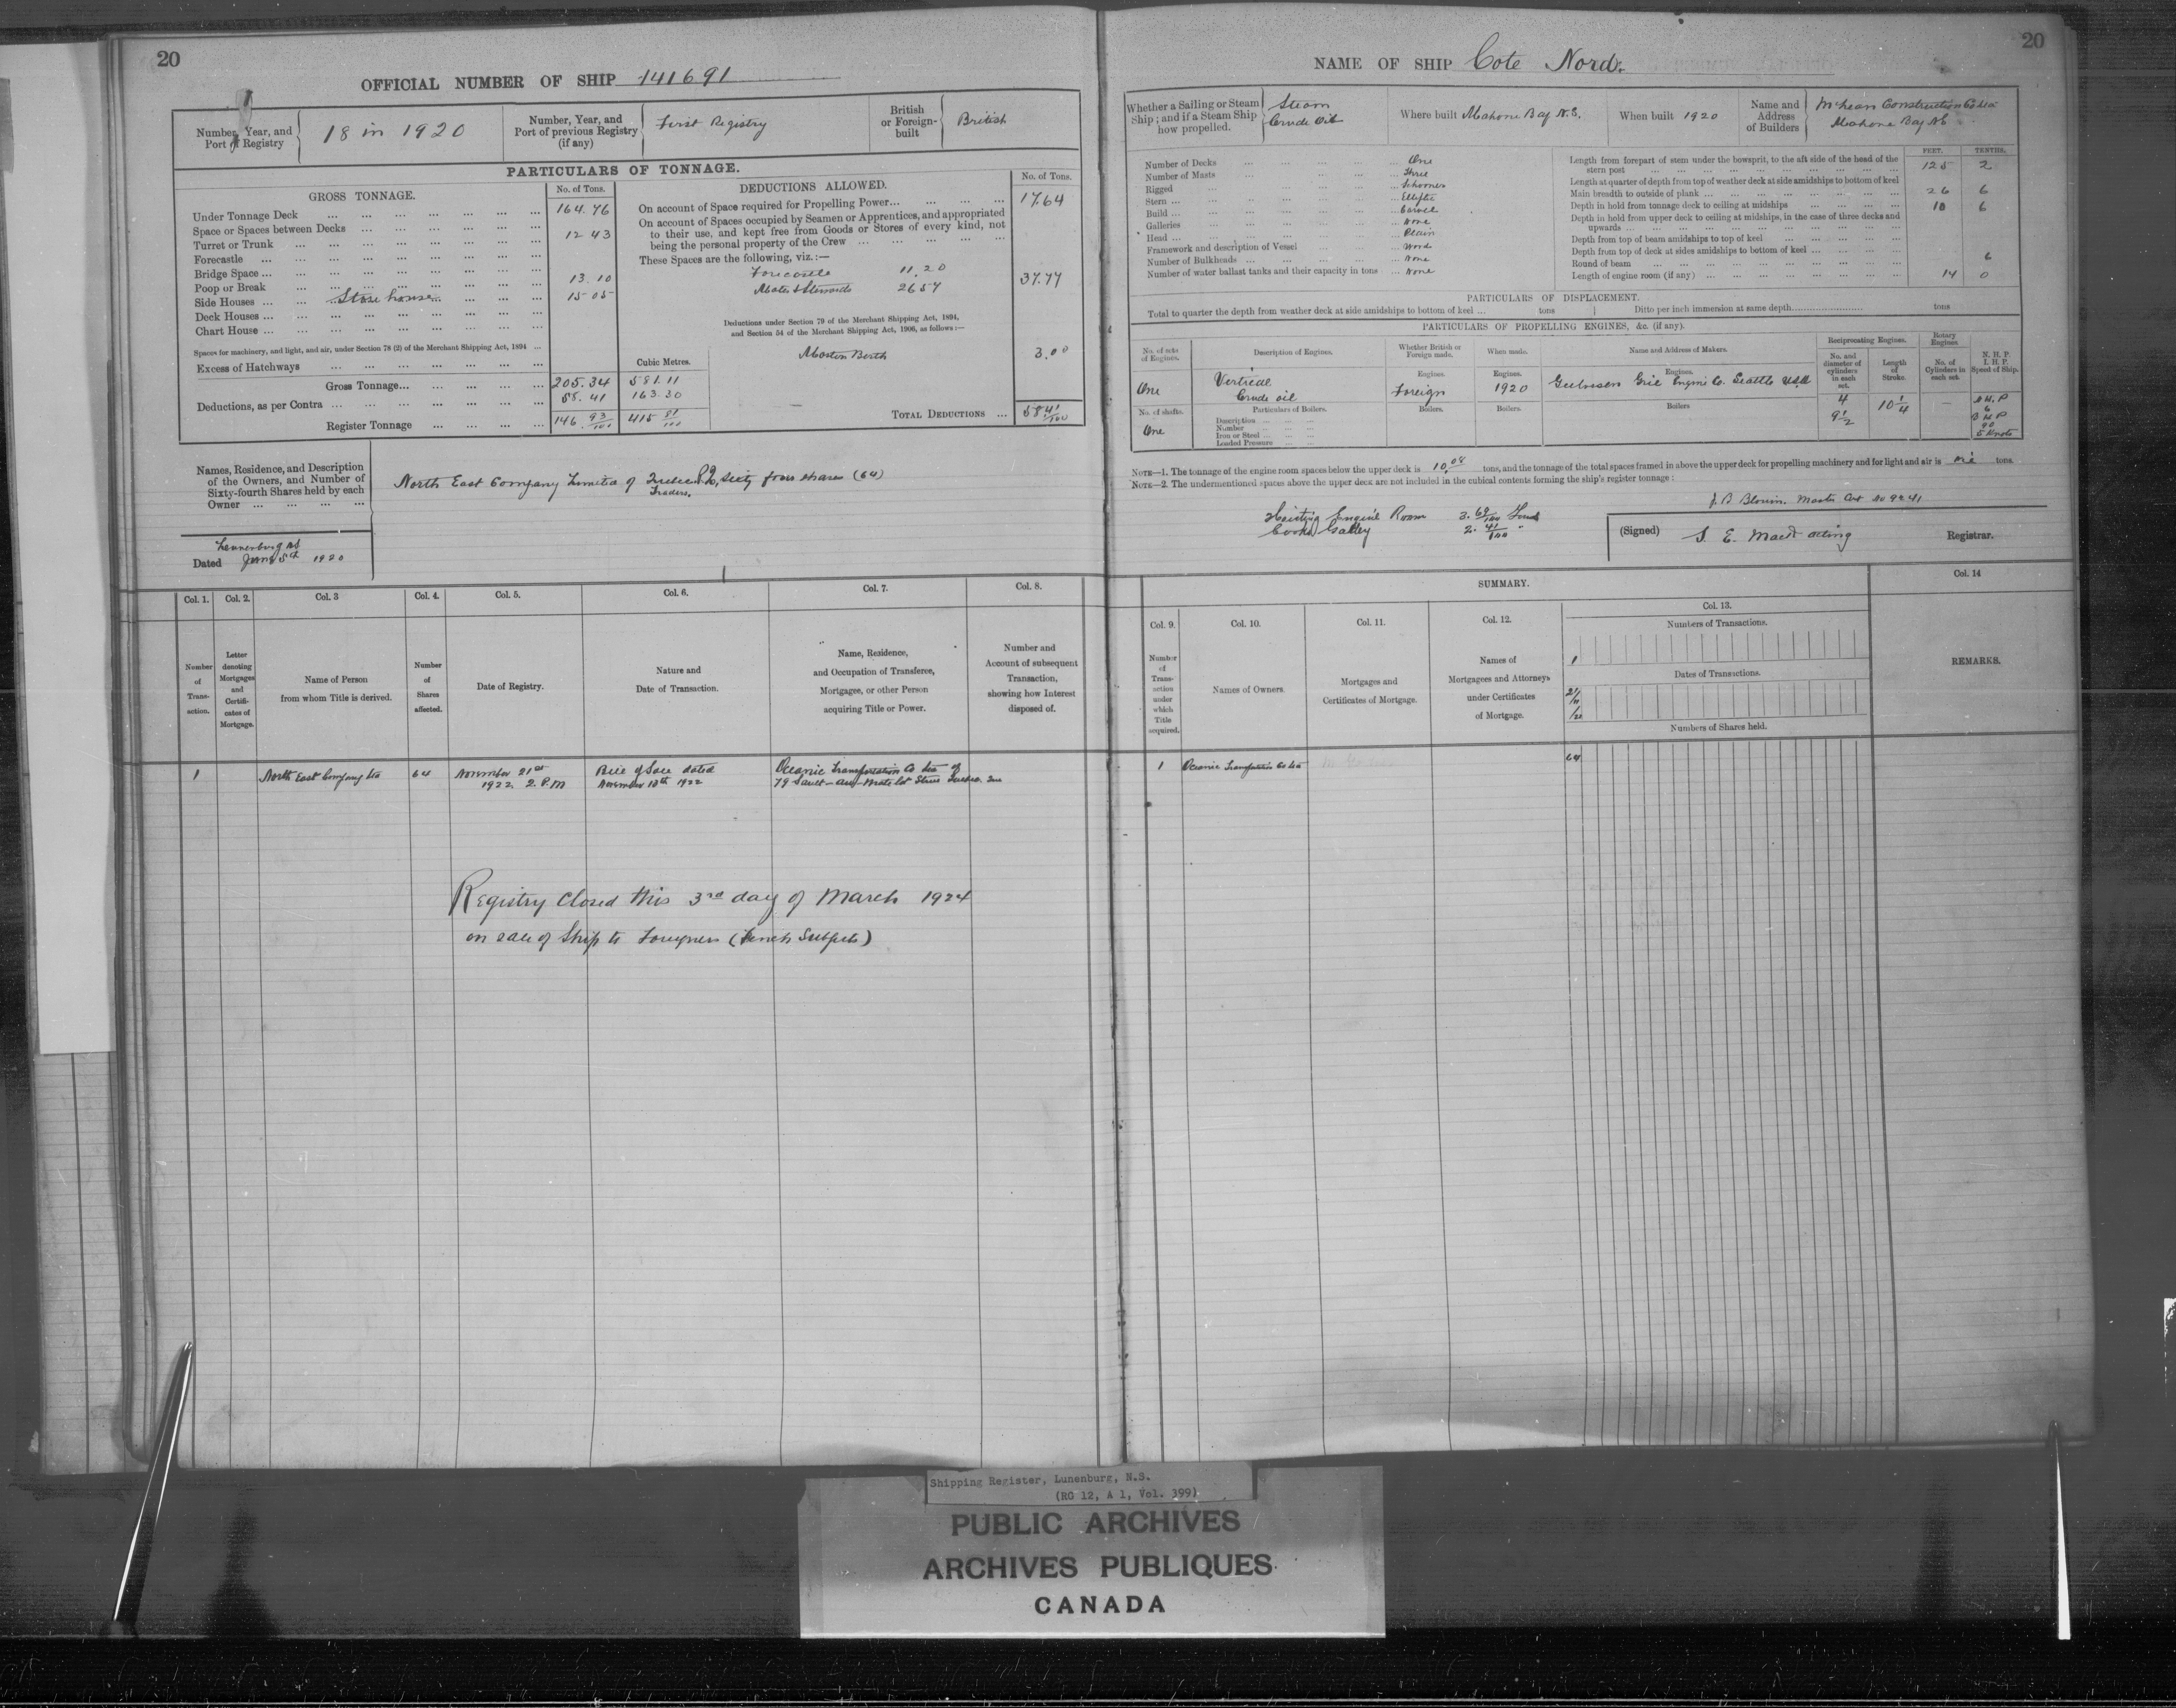 20
OFFICIAL NUMBER OF SHIP 141691
Number, Year, and Port of Registry
18 in 1920
Number, Year, and Port of previous Registry (if any)
First Registry
British or Foreign-built
British
PARTICULARS OF TONNAGE.
GROSS TONNAGE.
No. of Tons.
Under Tonnage Deck ... 164.76
Space or Spaces between Decks ...
Turret or Trunk ... 12 43
Forecastle ...
Bridge Space ...
Poop or Break ... 13.10
Side Houses ... Store house ... 15 05
Deck Houses ...
Chart House ...
Spaces for machinery, and light, and air, under Section 78 (2) of the Merchant Shipping Act, 1894 ...
Excess of Hatchways ...
Cubic Metres.
Gross Tonnage ... 205.34 581.11
Deductions, as per Contra ... 58.41 163.30
Register Tonnage ... 146 93/100 415 81/100
DEDUCTIONS ALLOWED.
No. of Tons.
On account of Space required for Propelling Power ... 17.64
On account of Spaces occupied by Seamen or Apprentices, and appropriated
to their use, and kept free from Goods or Stores of every kind, not
being the personal property of the Crew ...
These Spaces are the following, viz.:—
Forecastle 11.20
Mates & Stewards 26 57
37.77
Deductions under Section 79 of the Merchant Shipping Act, 1894,
and Section 54 of the Merchant Shipping Act, 1906, as follows:—
Berth 3.00
TOTAL DEDUCTIONS ... 58 41/100
Names, Residence, and Description
of the Owners, and Number of
Sixty-fourth Shares held by each
Owner ...
North East Company Limited of Quebec P.Q. Sixty four shares (64)
Traders.
Lunenburg NS
Dated June 5th 1920
Col. 1.
Number of Transaction.
Col. 2.
Letter denoting Mortgages and Certificates of Mortgage.
Col. 3
Name of Person from whom Title is derived.
Col. 4.
Number of Shares affected.
Col. 5.
Date of Registry.
Col. 6.
Nature and Date of Transaction.
Col. 7.
Name, Residence, and Occupation of Transferee, Mortgagee, or other Person acquiring Title or Power.
Col. 8.
Number and Account of subsequent Transaction, showing how Interest disposed of.
1
North East Company Ltd
64
November 21st
1922. 2. P.M
Bill of Sale dated
November 10th 1922
Oceanic Transportation Co Ltd of
79 Sault-au-Matelot Street Quebec. Que
Registry Closed this 3rd day of March 1924
on sale of Ship to Foreigners (French Subjects)
20
NAME OF SHIP Cote Nord.
Whether a Sailing or Steam Ship; and if a Steam Ship how propelled.
Steam
Crude Oil
Where built Mahone Bay N.S.
When built 1920
Name and Address of Builders
McLean Construction Co Ltd
Mahone Bay NS
Number of Decks ... One
Number of Masts ... Three
Rigged ... Schooner
Stern ... Elliptic
Build ... Carvel
Galleries ... None
Head ... Plain
Framework and description of Vessel ... Wood
Number of Bulkheads ... None
Number of water ballast tanks and their capacity in tons ... None
FEET. TENTHS.
Length from forepart of stem under the bowsprit, to the aft side of the head of the stern post ... 125 2
Length at quarter of depth from top of weather deck at side amidships to bottom of keel
Main breadth to outside of plank ... 26 6
Depth in hold from tonnage deck to ceiling at midships ... 10 6
Depth in hold from upper deck to ceiling at midships, in the case of three decks and upwards ...
Depth from top of beam amidships to top of keel ...
Depth from top of deck at sides amidships to bottom of keel ...
Round of beam ... 6
Length of engine room (if any) ... 14 0
PARTICULARS OF DISPLACEMENT.
Total to quarter the depth from weather deck at side amidships to bottom of keel ... tons
Ditto per inch immersion at same depth ... tons
PARTICULARS OF PROPELLING ENGINES, &c. (if any).
No. of sets of Engines.
Description of Engines.
Whether British or Foreign made.
When made.
Name and Address of Makers.
Reciprocating Engines.
No. and diameter of cylinders in each set.
Length of Stroke.
Rotary Engines.
No. of Cylinders in each set.
N. H. P.
I. H. P.
Speed of Ship.
One
Vertical
Crude oil
Engines.
Foreign
Engines.
1920
Engines.
Seattle USA
4
9 1/2
10 1/4
90
5 Knots
No. of shafts.
One
Particulars of Boilers.
Description ...
Number ...
Iron or Steel ...
Loaded Pressure ...
Boilers.
Boilers.
Boilers
NOTE—1. The tonnage of the engine room spaces below the upper deck is 10.08 tons, and the tonnage of the total spaces framed in above the upper deck for propelling machinery and for light and air is Nil tons.
NOTE—2. The undermentioned spaces above the upper deck are not included in the cubical contents forming the ship's register tonnage:
Hoisting Engine Room 3. 69/100 Tons
Cooks Galley 2. 41/100 "
J. B Blouin. Master Cert No 9241
(Signed) S. E. Mack acting Registrar.
SUMMARY.
Col. 9.
Number of Transaction under which Title acquired.
Col. 10.
Names of Owners.
Col. 11.
Mortgages and Certificates of Mortgage.
Col. 12.
Names of Mortgagees and Attorneys under Certificates of Mortgage.
Col. 13.
Numbers of Transactions.
1
Dates of Transactions.
21/11/22
Numbers of Shares held.
Col. 14
REMARKS.
1
Oceanic Transportation Co Ltd
64
Shipping Register, Lunenburg, N.S.
(RG 12, A 1, Vol. 399)
PUBLIC ARCHIVES
ARCHIVES PUBLIQUES
CANADA